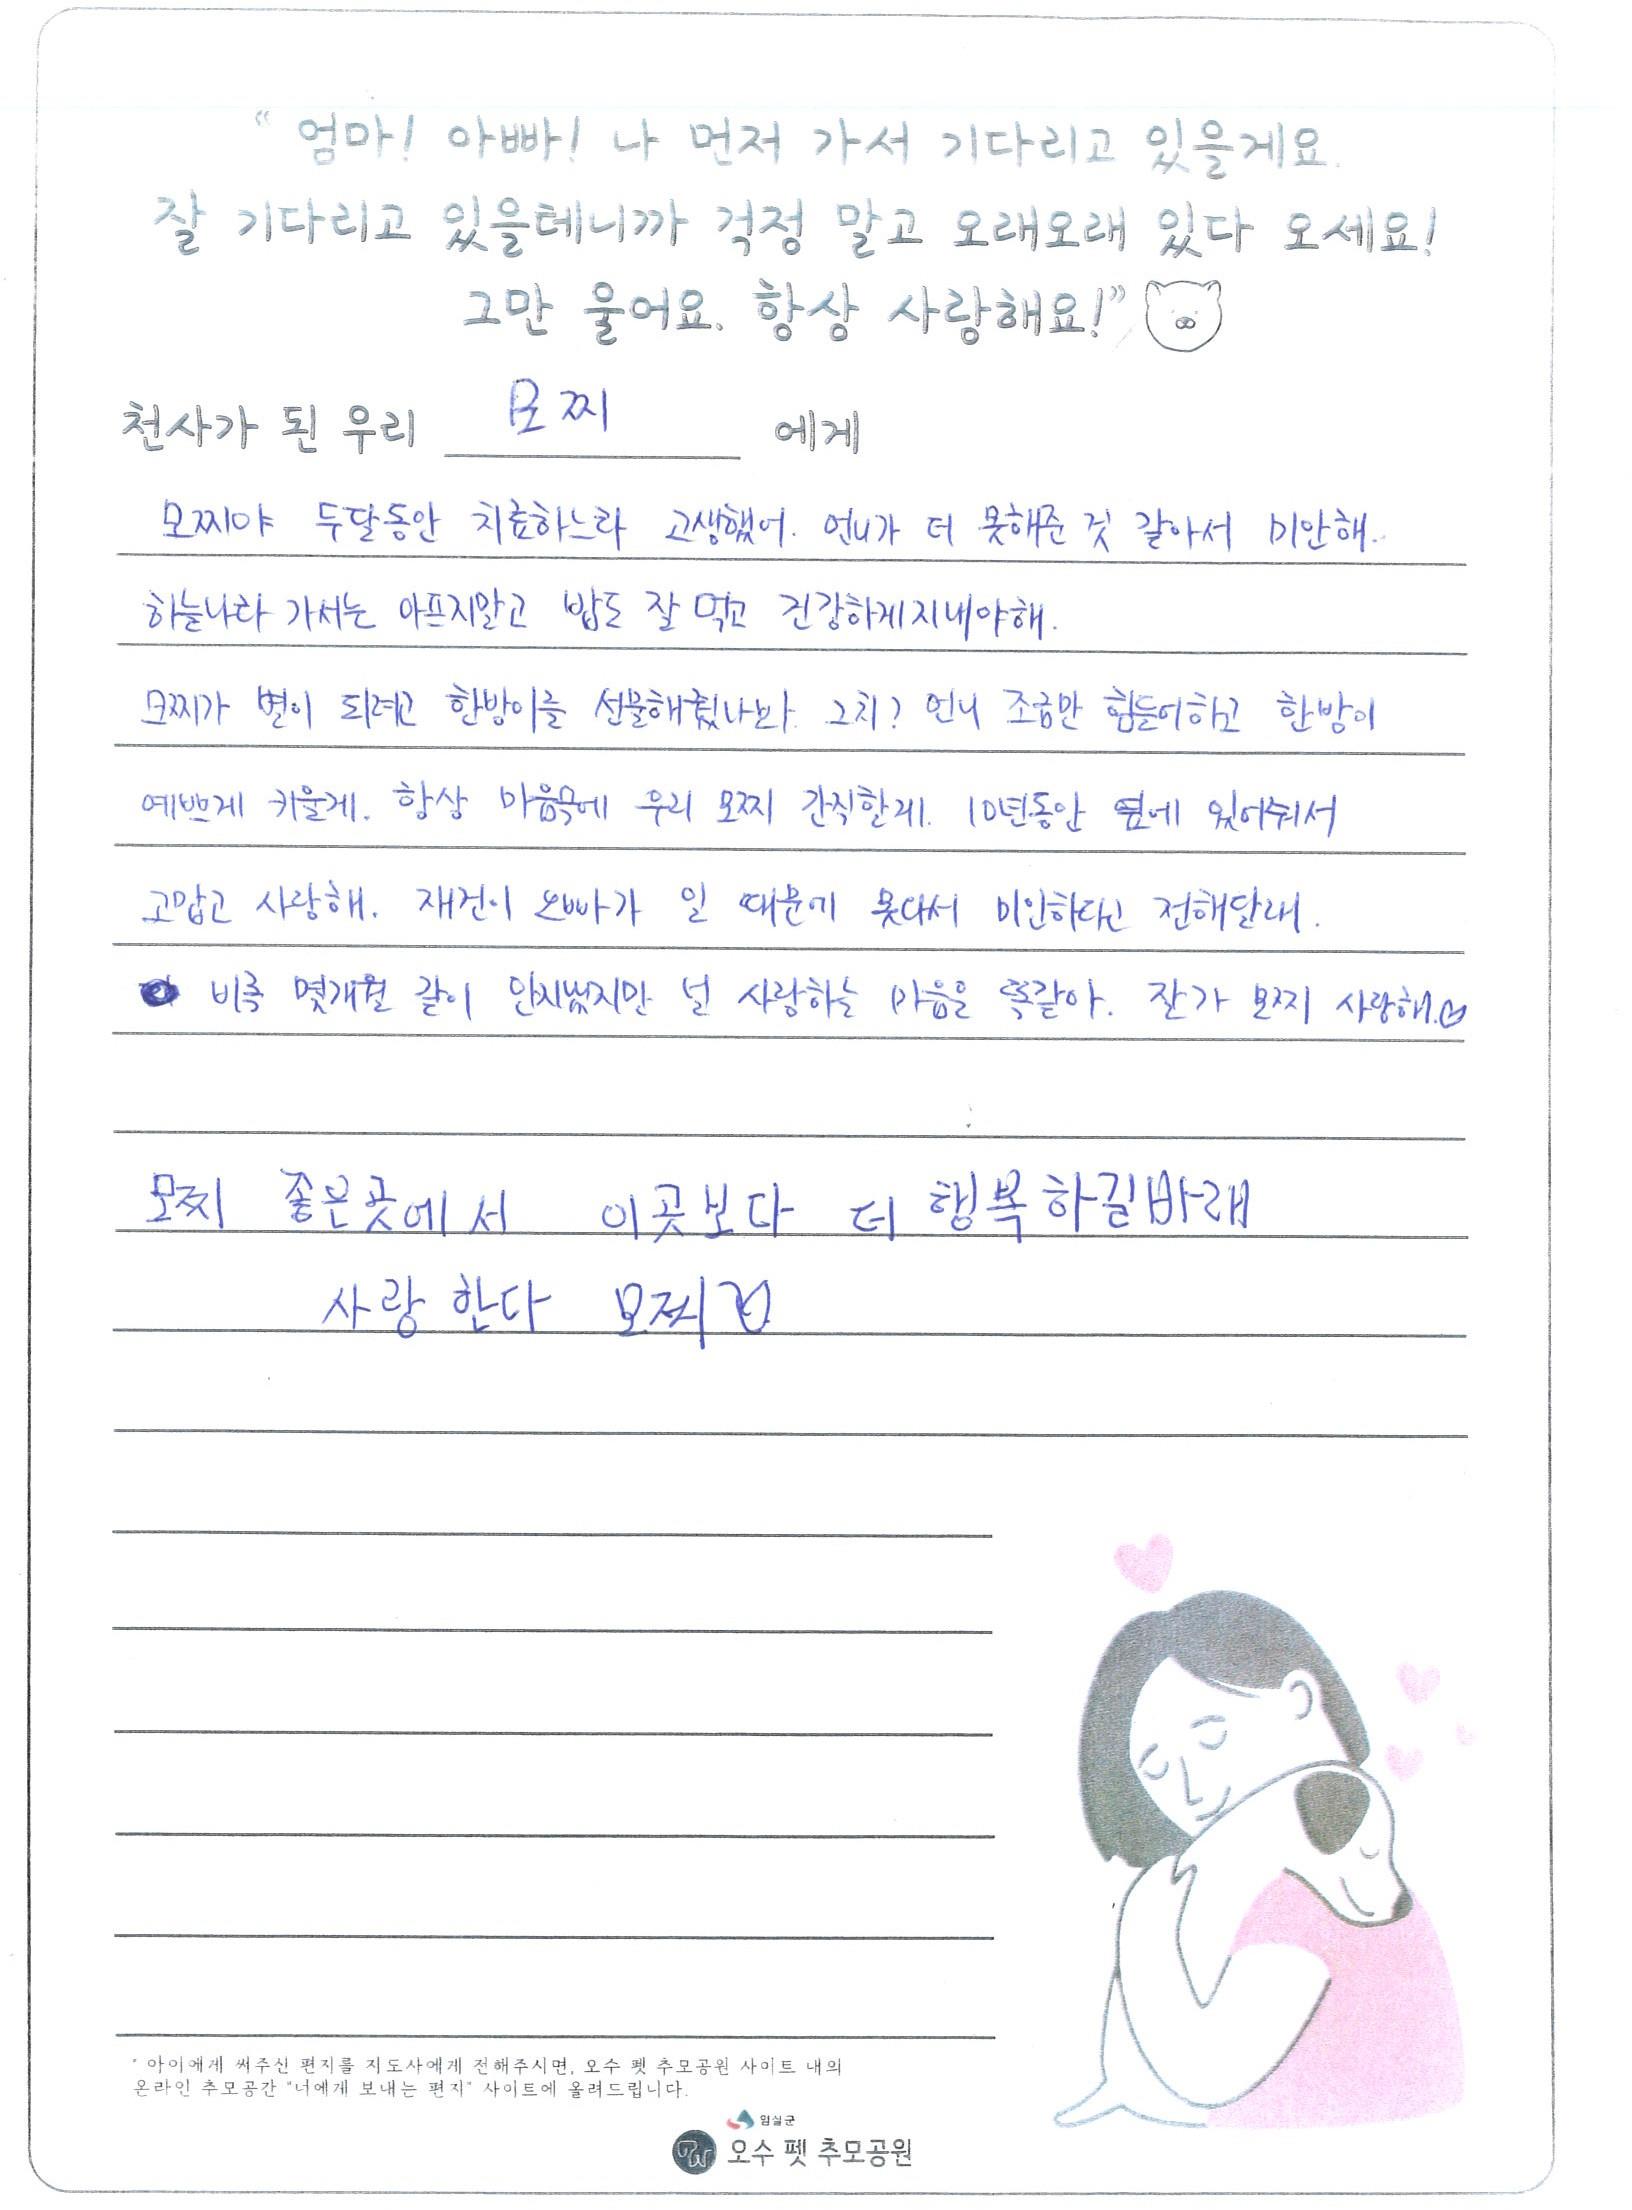 “ 엄마! 아빠! 나 먼저 가서 기다리고 있을게요.
잘 기다리고 있을테니까 걱정 말고 오래오래 있다 오세요!
그만 울어요. 항상 사랑해요!”
천사가 된 우리 모찌 에게
모찌야 두달동안 치료하느라 고생했어. 언니가 더 못해준 것 같아서 미안해.
하늘나라 가서는 아프지말고 밥도 잘 먹고 건강하게지내야해.
모찌가 별이 되려고 한방이를 선물해줬나봐. 그치? 언니 조금만 힘들어하고 한방이
예쁘게 키울게. 항상 마음속에 우리 모찌 간직할게. 10년동안 옆에 있어줘서
고맙고 사랑해. 재건이 오빠가 일 때문에 못와서 미안하다고 전해달래.
비록 몇개월 같이 안지냈지만 널 사랑하는 마음은 똑같아. 잘가 모찌 사랑해.♡
모찌 좋은곳에서 이곳보다 더 행복하길바래
사랑한다 모찌♡
* 아이에게 써주신 편지를 지도사에게 전해주시면, 오수 펫 추모공원 사이트 내의
온라인 추모공간 "너에게 보내는 편지" 사이트에 올려드립니다.
임실군
PW 오수 펫 추모공원